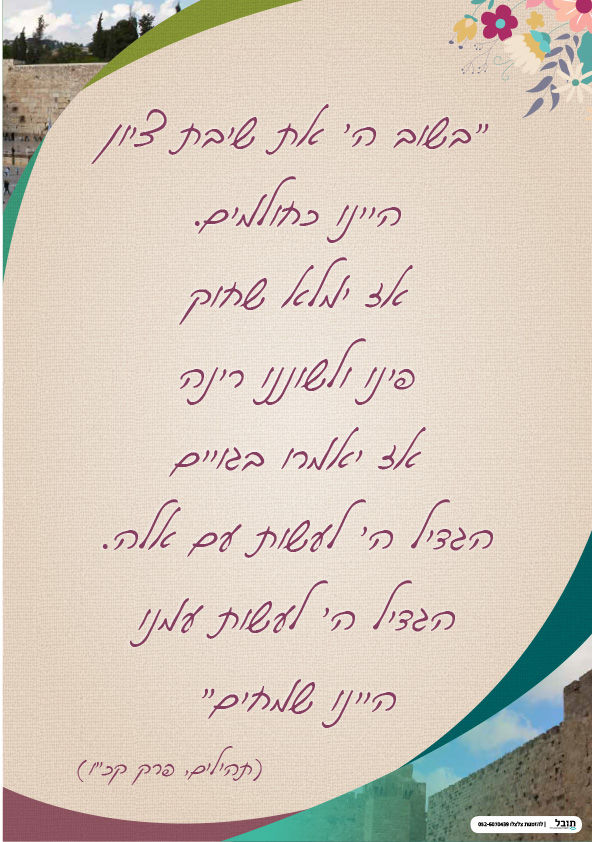 "בשוב ה' את שיבת ציון
היינו כחולמים.
אז ימלא שחוק
פינו ולשוננו רינה
אז יאמרו בגויים
הגדיל ה' לעשות עם אלה.
הגדיל ה' לעשות עמנו
היינו שמחים"
(תהילים, פרק קכ"ו)
תובל | להזמנות צלצלו 052-6070439